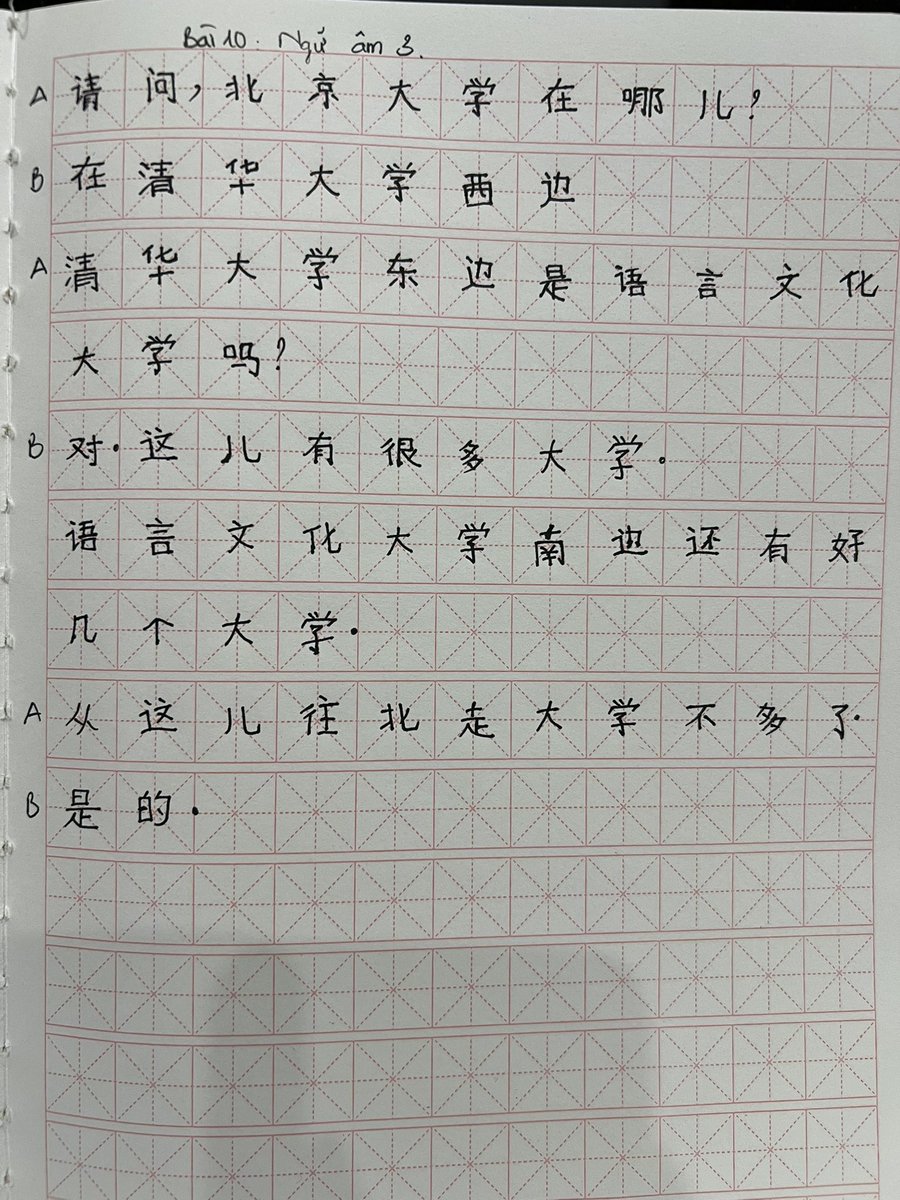 Bài 10: Ngữ âm 3.
A 请问,北京大学在哪儿?
B 在清华大学西边
A 清华大学东边是语言文化
大学吗?
B 对.这儿有很多大学.
语言文化大学南边还有好
几个大学.
A 从这儿往北走大学不多了.
B 是的.